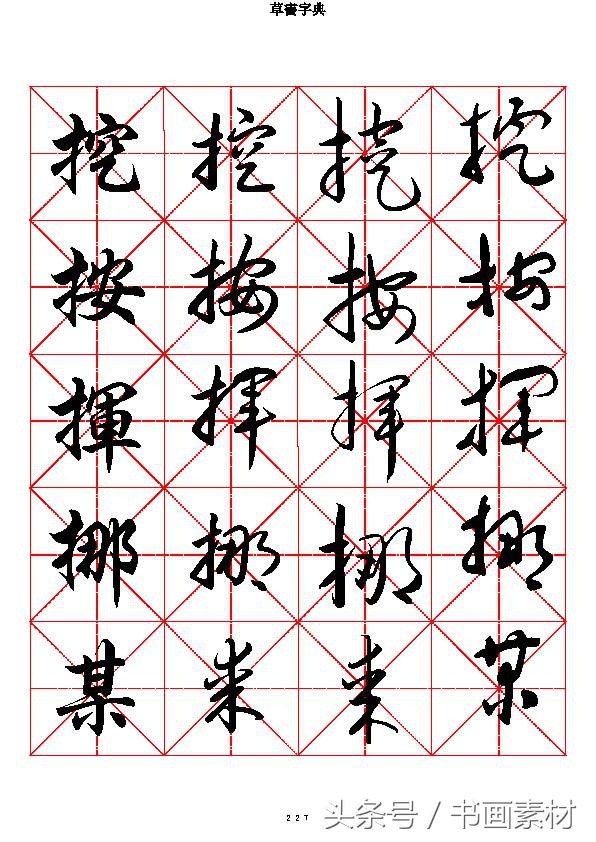 草書字典
挖 挖 挖 挖
按 按 按 按
揮 揮 揮 揮
挪 挪 挪 挪
某 某 某 某
227
头条号 / 书画素材